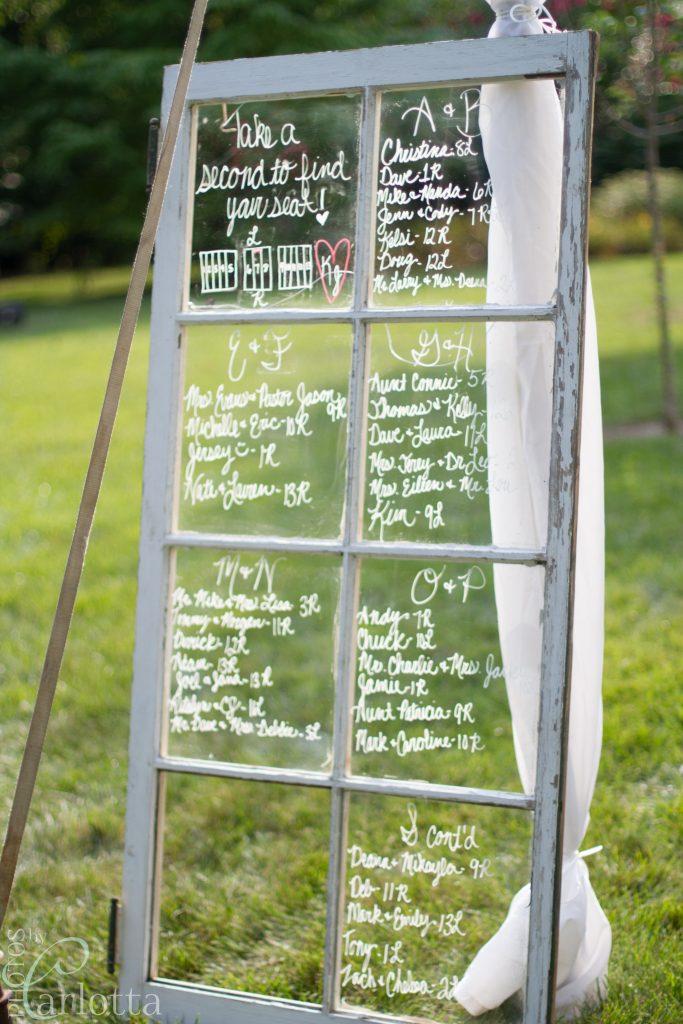 Take a
second to find
your seat!
L
R
A & B
Christina - 8L
Dave - 1R
Mike & Manda - 6R
Jenn & Cody - 7R
Kelsi - 12R
Doug - 12L
Mr. Larry & Mrs. Deana -
E & F
Mrs. Evans & Pastor Jason
9R
Michelle & Eric - 10R
Jersey - 1R
Nate & Lauren - 13R
G & H
Aunt Connie - 5R
Thomas & Kelly -
Dave & Laura - 11L
Mrs. Torey & Dr.
Mrs. Eileen & Mr. Lou
Kim - 9L
M & N
Mr. Mike & Mrs. Lisa 3R
Tommy & Morgan - 11R
Derick - 12R
Adam - 13R
Joel & Jana - 13R
Katelyn &
Mr. Dave & Mrs. Debbie - 3L
O & P
Andy - 7R
Chuck - 10L
Mr. Charlie & Mrs.
Jamie - 1R
Aunt Patricia - 9R
Mark & Caroline - 10R
S cont'd
Deana & Mikayla - 9R
Deb - 11R
Mark & Emily - 13L
Tony - 1L
Zach & Chelsea - 2L
Photos by
Carlotta